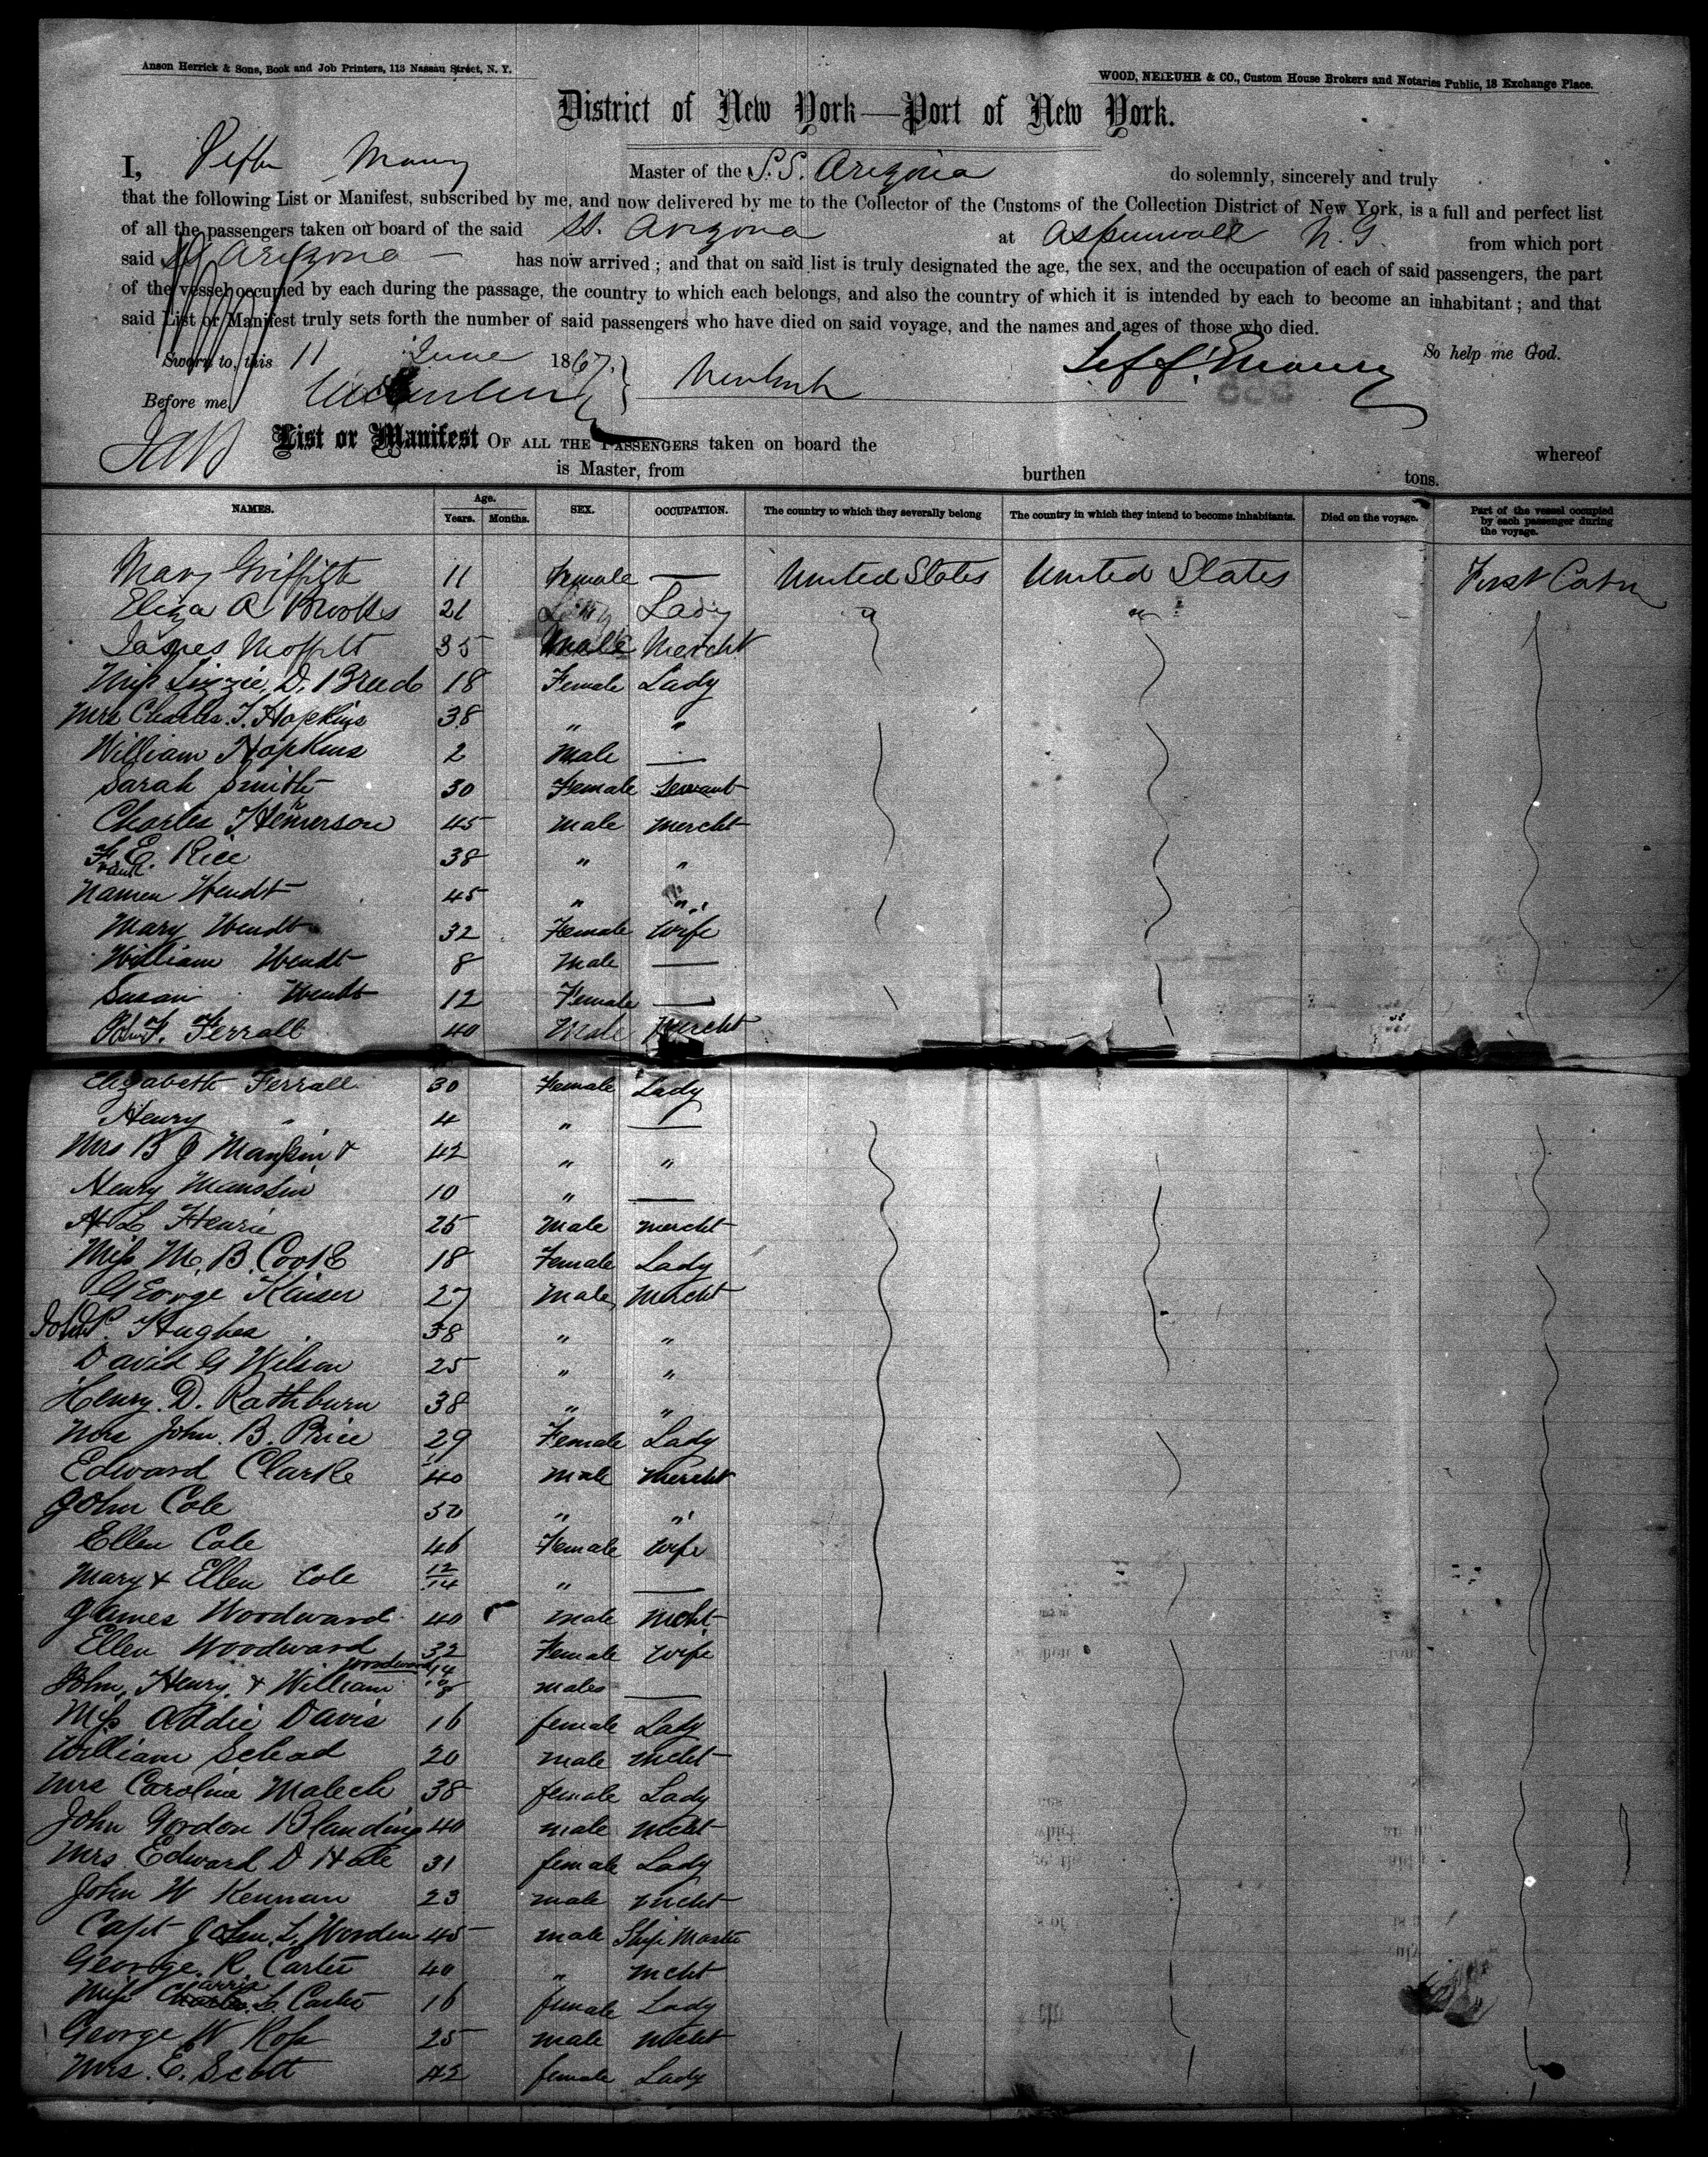 Anson Herrick & Sons, Book and Job Printers, 113 Nassau Street, N. Y.
WOOD, NEIEUHR & CO., Custom House Brokers and Notaries Public, 18 Exchange Place.
District of New York—Port of New York.
I, Maury Master of the S.S. Arizona do solemnly, sincerely and truly
that the following List or Manifest, subscribed by me, and now delivered by me to the Collector of the Customs of the Collection District of New York, is a full and perfect list
of all the passengers taken on board of the said SS. Arizona at Aspinwall N. G. from which port
said SS Arizona has now arrived; and that on said list is truly designated the age, the sex, and the occupation of each of said passengers, the part
of the vessel occupied by each during the passage, the country to which each belongs, and also the country of which it is intended by each to become an inhabitant; and that
said List or Manifest truly sets forth the number of said passengers who have died on said voyage, and the names and ages of those who died.
Sworn to, this 11 June 1867. Jeff. Maury So help me God.
Before me,
List or Manifest OF ALL THE PASSENGERS taken on board the whereof
is Master, from burthen tons.
NAMES. Age. Years. Months. SEX. OCCUPATION. The country to which they severally belong The country in which they intend to become inhabitants. Died on the voyage. Part of the vessel occupied by each passenger during the voyage.
Mary Griffith 11 Female — United States United States First Cabin
Eliza A Brooks 21 Lady " "
James Moffitt 35 Male Mercht
Miss Lizzie D. Breed 18 Female Lady
Mrs Charles T. Hopkins 38 " "
William Hopkins 2 Male —
Sarah Smith 30 Female Servant
Charles Hemerson 45 Male Mercht
Frank E. Rice 38 " "
Wendt 45 " "
Mary Wendt 32 Female Wife
William Wendt 8 Male —
Susan Wendt 12 Female —
John F. Ferrall 40 Male Mercht
Elizabeth Ferrall 30 Female Lady
Henry " 4 " —
Mrs B J 42 " "
Henry 10 " —
H L Henrie 25 Male Mercht
Miss M. B. Cook 18 Female Lady
George Kaiser 27 Male Mercht
John P. Hughes 38 " "
David G Wilson 25 " "
Henry D. Rathburn 38 " "
Mrs John B. Price 29 Female Lady
Edward Clarke 40 Male Mercht
John Cole 50 " "
Ellen Cole 46 Female Wife
Mary & Ellen Cole 12 14 " —
James Woodward 40 Male Mcht
Ellen Woodward 32 Female Wife
John, Henry & William Woodward 14 10 8 males —
Miss Addie Davis 16 female Lady
William Schad 20 male mcht
Mrs Caroline Malech 38 female Lady
John Gordon Blanding 40 male mcht
Mrs Edward D Hale 31 female Lady
John W Kennan 23 male mcht
Capt John L. Worden 45 male Ship Master
George R Carter 40 " mcht
Miss Carrie L. Carter 16 female Lady
George W Ross 25 male mcht
Mrs. E. Scott 42 female Lady